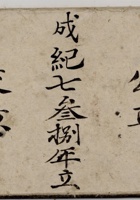 成紀七叁捌年立